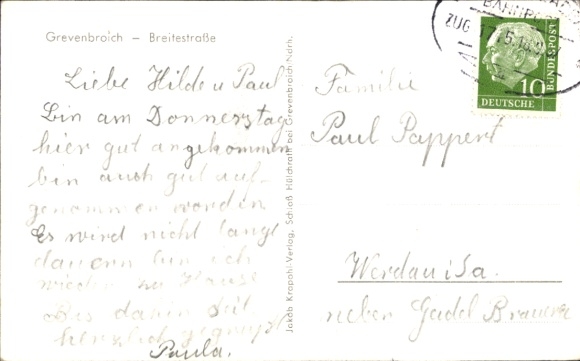 Grevenbroich – Breitestraße
Liebe Hilde u Paul
bin am Donnerstag
hier gut angekommen
bin auch gut auf-
genommen worden
Es wird nicht lange
dauern bin ich
wieder zu Hause
Bis dahin seit
herzlich gegrüßt
Paula.
Jakob Krapohl-Verlag, Schloß Hülchrath bei Grevenbroich/Ndrh.
BAHNPOST
ZUG
DEUTSCHE
BUNDESPOST
10
Familie
Paul Pappert
Werdau i Sa.
neber Gadel Brauerei